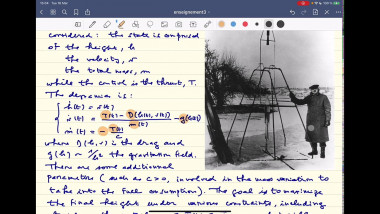 15:04 Tue 16 Mar
enseignement3
considered: the state is composed
of the height, h
the velocity, v
the total mass, m
while the control is the thrust, T.
The dynamics is:
ḣ(t) = v(t)
v̇(t) = T(t) - D(h(t), v(t)) / m(t) - g(h(t))
ṁ(t) = - T(t) / c
where D(h, v) is the drag and
g(h) ~ 1/h² the gravitation field.
There are some additional
parameters (such as c > 0, involved in the mass variation to
take into the fuel consumption). The goal is to maximize
the final height under various constraints, including